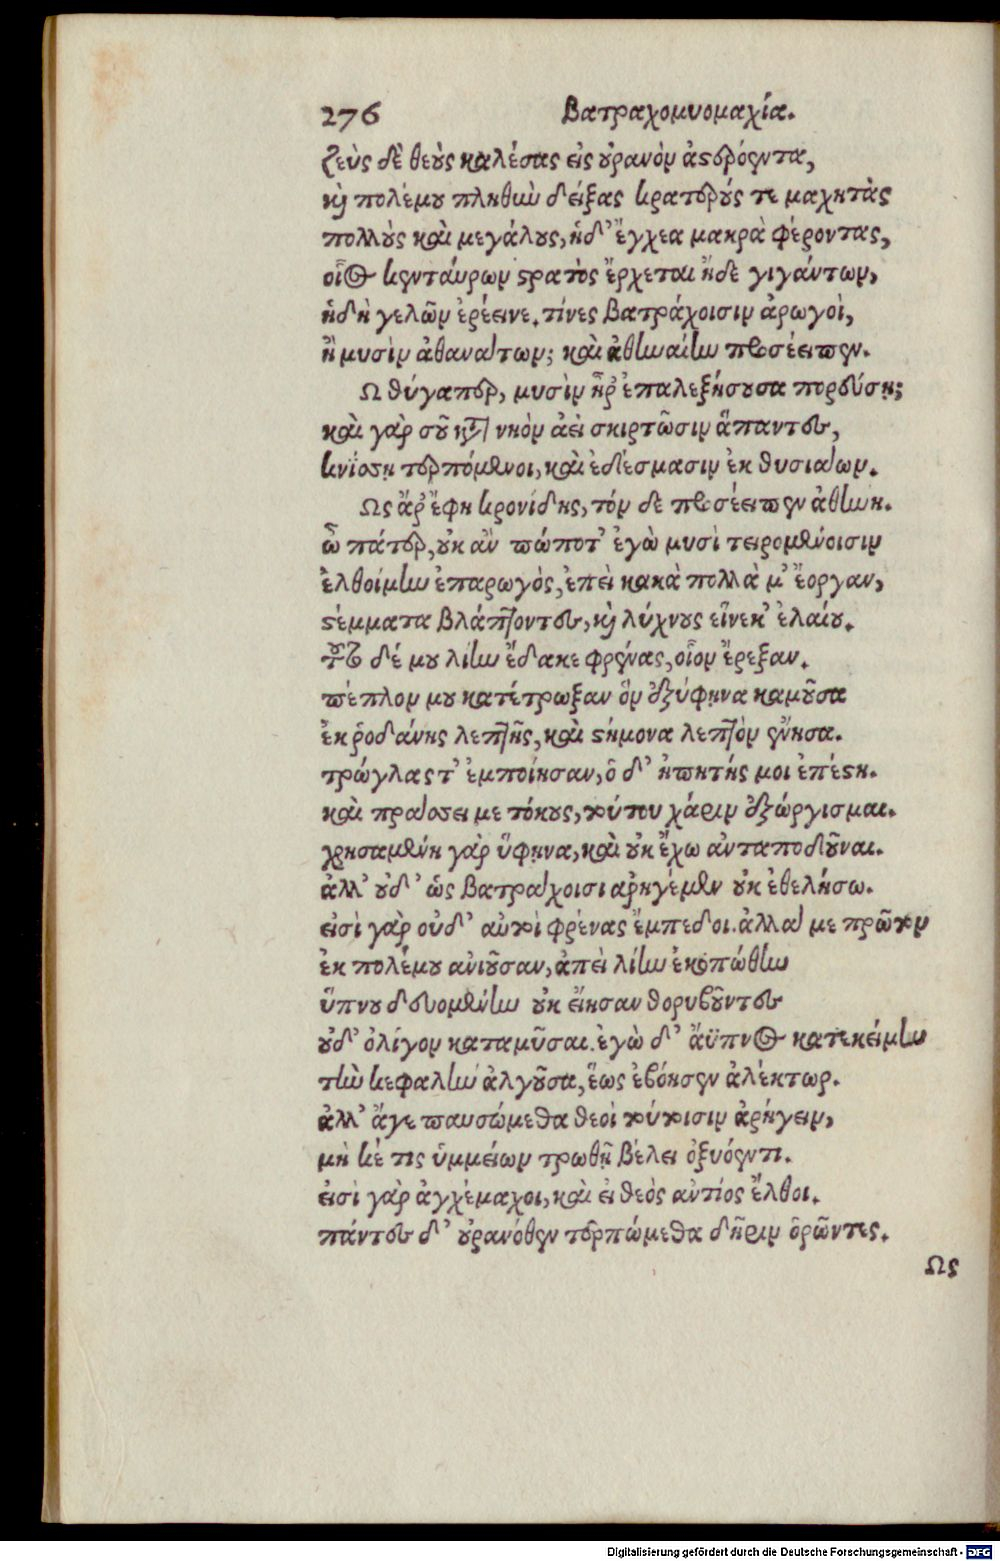 276 Βατραχομυομαχία.
ζεὺς δὲ θεοὺς καλέσας εἰς οὐρανὸν ἀστερόεντα,
καὶ πολέμου πληθὼ δείξας κρατερούς τε μαχητὰς
πολλοὺς καὶ μεγάλους, ἠδ' ἔγχεα μακρὰ φέροντας,
οἷος κενταύρων στρατὸς ἔρχεται ἤδε γιγάντων,
ἡδὴ γελῶν ἐρέεινε. τίνες βατράχοισιν ἀρωγοὶ,
ἢ μυσὶν ἀθανάτων; καὶ ἀθηναίην προσέειπεν.
Ω θύγατερ, μυσὶν ἦρ' ἐπαλεξήσουσα πορεύσῃ;
καὶ γὰρ σοῦ κατὰ νηὸν ἀεὶ σκιρτῶσιν ἅπαντες,
κνίσσῃ τερπόμενοι, καὶ ἐδέσμασιν ἐκ θυσιάων.
Ως ἄρ' ἔφη κρονίδης, τόν δε προσέειπεν ἀθήνη.
ὦ πάτερ, οὐκ ἂν πώποτ' ἐγὼ μυσὶ τειρομένοισιν
ἐλθοίμην ἐπαρωγὸς, ἐπεὶ κακὰ πολλὰ μ' ἔοργαν,
στέμματα βλάπτοντες, καὶ λύχνους εἵνεκ' ἐλαίου.
τοῦτο δέ μου λίην ἔδακε φρένας, οἷον ἔρεξαν.
πέπλον μου κατέτρωξαν ὃν ἐξύφηνα καμοῦσα
ἐκ ῥοδάνης λεπτῆς, καὶ στήμονα λεπτὸν ἔνησα.
τρώγλας τ' ἐμποίησαν, ὃ δ' ἠπητής μοι ἐπέστη.
καὶ πράσσει με τόκους, τούτου χάριν ἐξώργισμαι.
χρησαμένη γὰρ ὕφηνα, καὶ οὐκ ἔχω ἀνταποδοῦναι.
ἀλλ' οὐδ' ὣς βατράχοισι ἀρηγέμεν οὐκ ἐθελήσω.
εἰσὶ γὰρ οὐδ' αὐτοὶ φρένας ἔμπεδοι. ἀλλά με πρῶτον
ἐκ πολέμου ἀνιοῦσαν, ἀπεὶ λίην ἐκοπώθην
ὕπνου δευομένην οὐκ εἴησαν θορυβοῦντες
οὐδ' ὀλίγον καταμῦσαι. ἐγὼ δ' ἄϋπνος κατεκείμην
τὴν κεφαλὴν ἀλγοῦσα, ἕως ἐβόησεν ἀλέκτωρ.
ἀλλ' ἄγε παυσώμεθα θεοὶ τούτοισιν ἀρήγειν,
μὴ κέ τις ὑμμείων τρωθῇ βέλει ὀξυόεντι.
εἰσὶ γὰρ ἀγχέμαχοι, καὶ εἰ θεὸς ἀντίος ἔλθοι.
πάντες δ' οὐρανόθεν τερπώμεθα δῆριν ὁρῶντες.
Ως
Digitalisierung gefördert durch die Deutsche Forschungsgemeinschaft - DFG